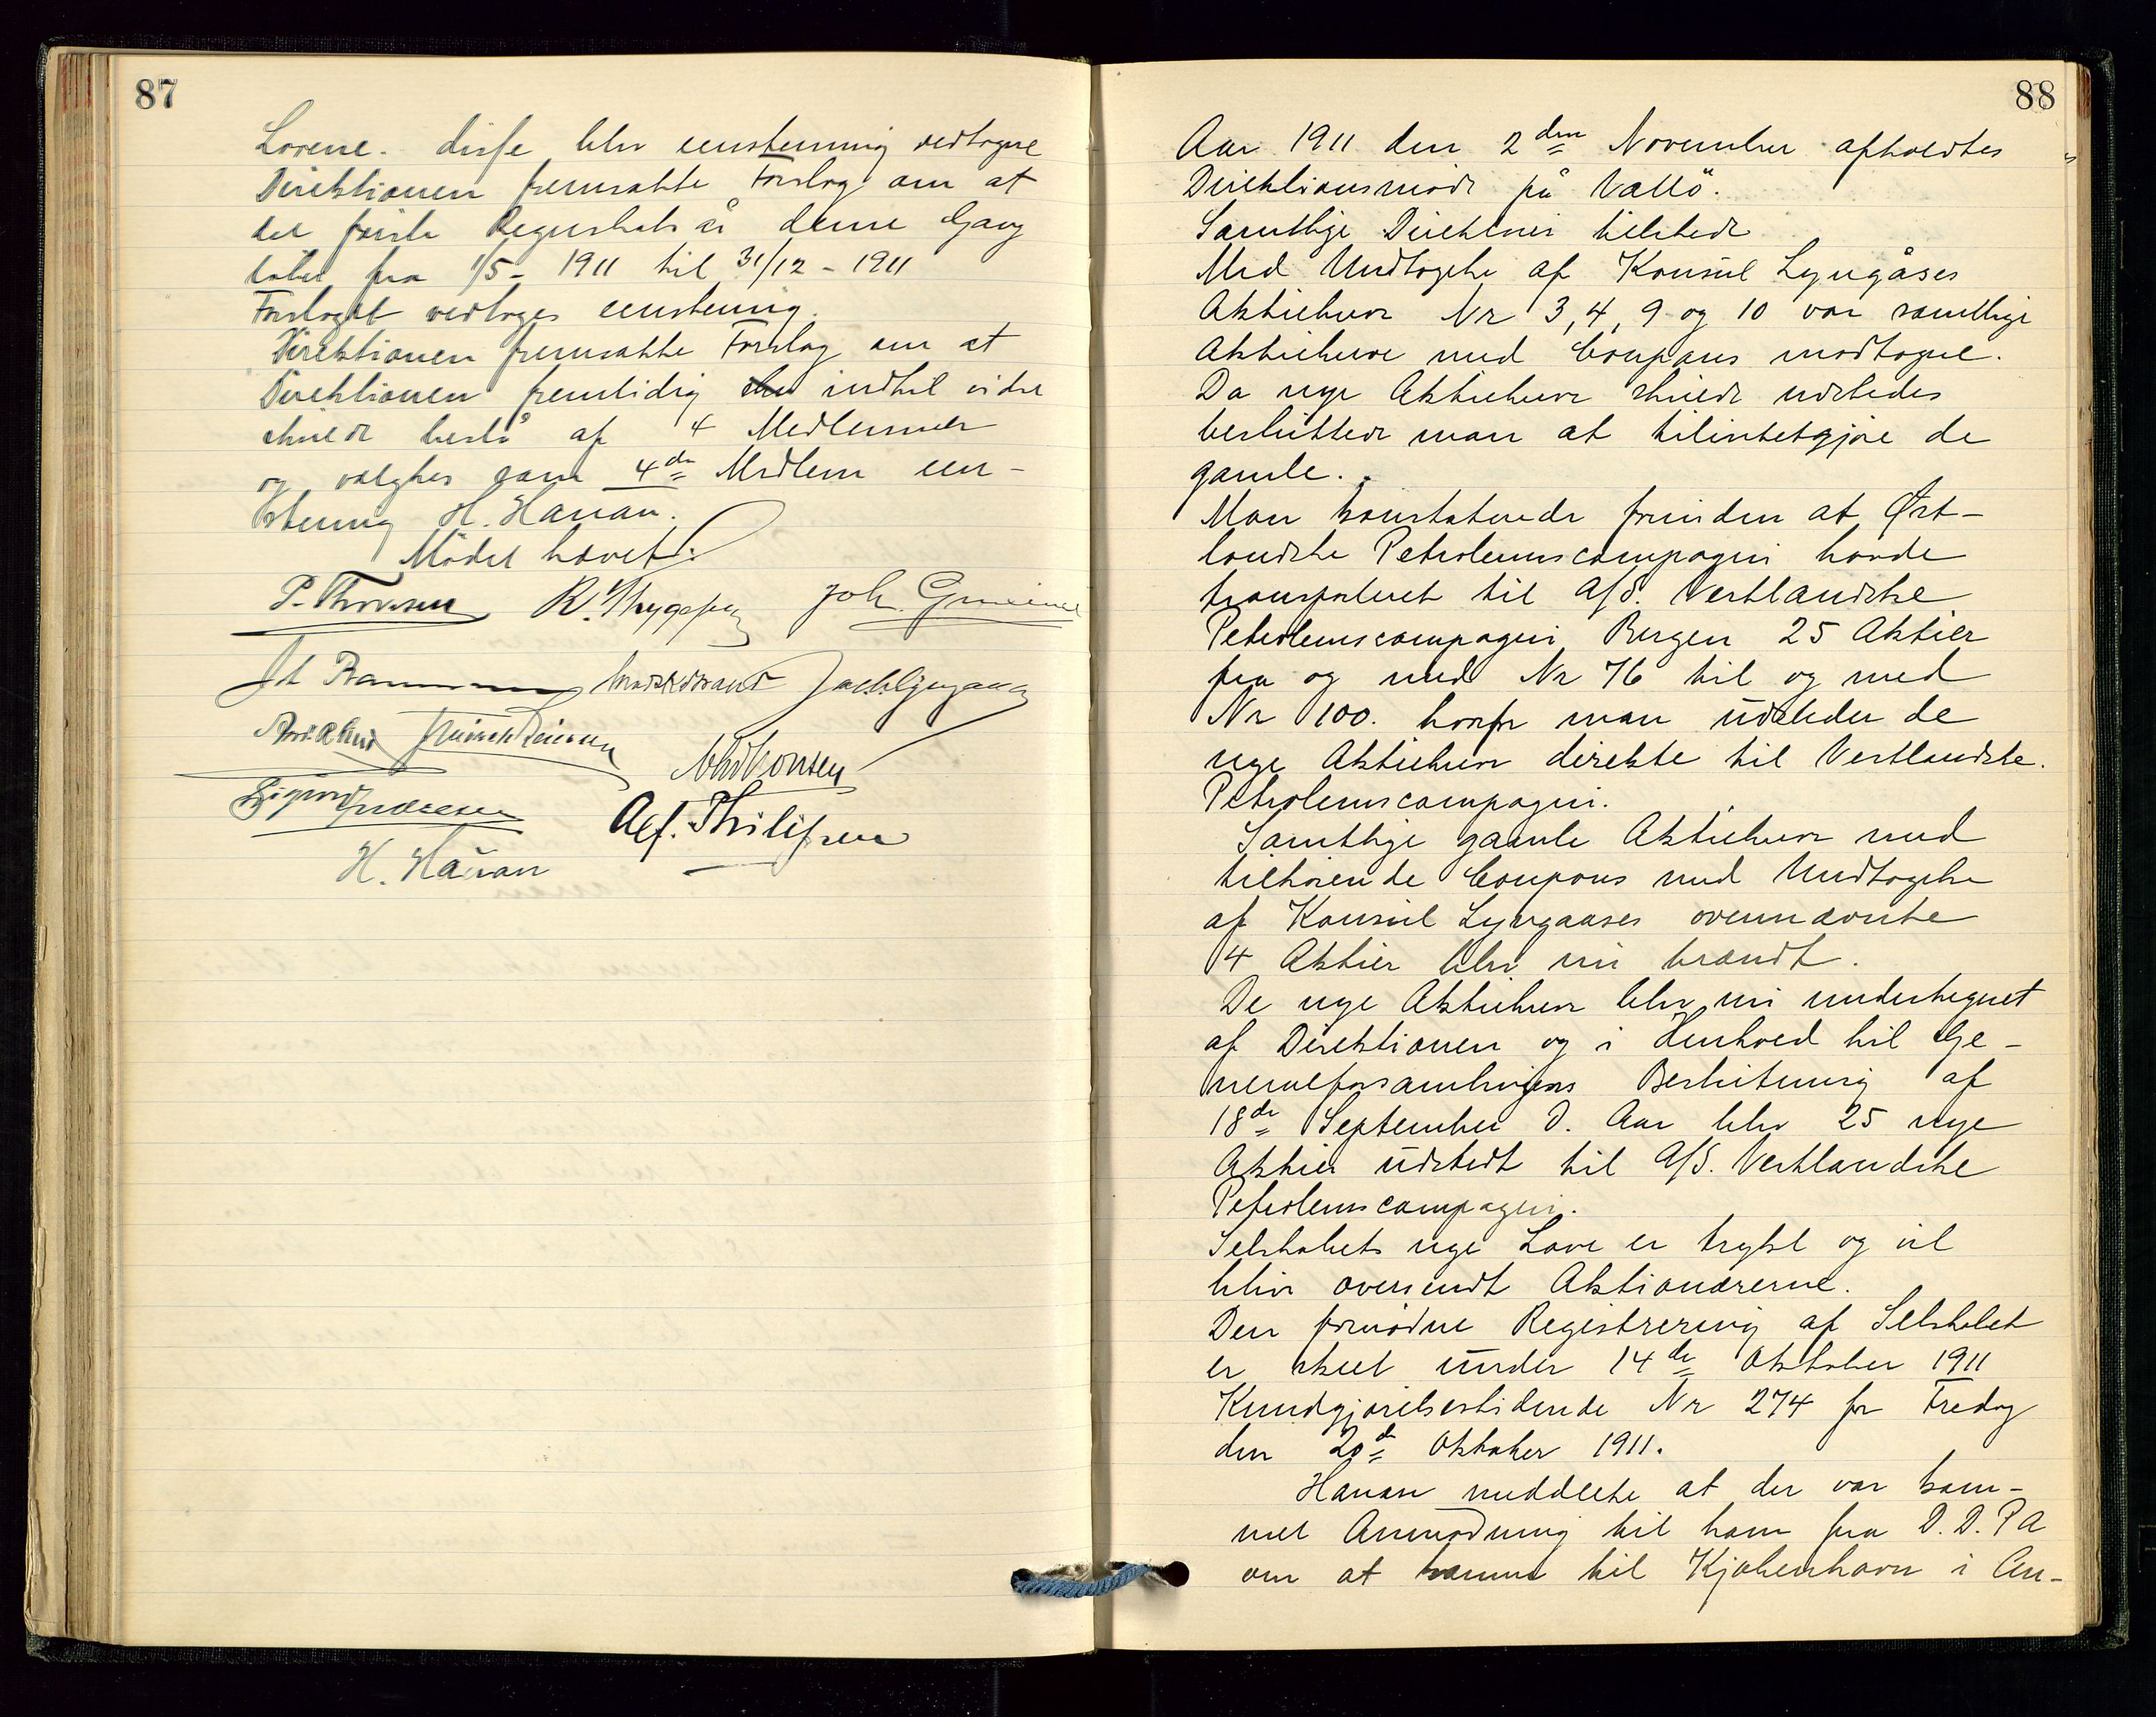 87
Lovene. disse blev eenstemmig vedtagne
Direktionen fremsatte Forslag om at
det første Regnskabsår denne Gang
løber fra 1/5 - 1911 til 31/12 - 1911
Forslaget vedtoges eenstemig.
Direktionen fremsatte Forslag om at
Direktionen fremtidig indtil videre
skulde bestå af 4 Medlemmer
og valgtes som 4de Medlem een-
stemig H. Hanan.
Mödet hævet.
P. Thomsen R. Thygesen Joh.
Alf. Philipsen
H. Hanan
88
Aar 1911 den 2den November afholdtes
Direktionsmöde på Vallö.
Samtlige Direktører tilstede
Med Undtagelse af Konsul Lyngåses
Aktiebreve Nr 3, 4, 9 og 10 var samtlige
Aktiebreve med Coupons modtagne.
Da nye Aktiebreve skulde udstedes
besluttede man at tilintetgjøre de
gamle.
Man konstaterede forinden at Øst-
landske Petroleumscompagni havde
transporteret til A/S. Vestlandske
Petroleumscompagni Bergen 25 Aktier
fra og med Nr 76 til og med
Nr 100. hvorfor man udsteder de
nye Aktiebreve direkte til Vestlandske.
Petroleumscompagni.
Samtlige gamle Aktiebreve med
tilhørende Coupons med Undtagelse
af Konsul Lyngaases ovennævnte
4 Aktier blev nu brændt.
De nye Aktiebreve blev nu undertegnet
af Direktionen og i Henhold til Ge-
neralforsamlingens Beslutning af
18de September d. Aar blev 25 nye
Aktier udstedt til A/S. Vestlandske
Petroleumscompagni.
Selskabets nye Love er trykt og vil
blive oversendt Aktionærerne.
Den fornødne Registrering af Selskabet
er skeet under 14de Oktober 1911
Kundgjørelsestidende Nr 274 for Fredag
den 20de Oktober 1911.
Hanan meddeelte at der var kom-
met Anmodning til ham fra D. D. P A
om at komme til Kjøbenhavn i An-